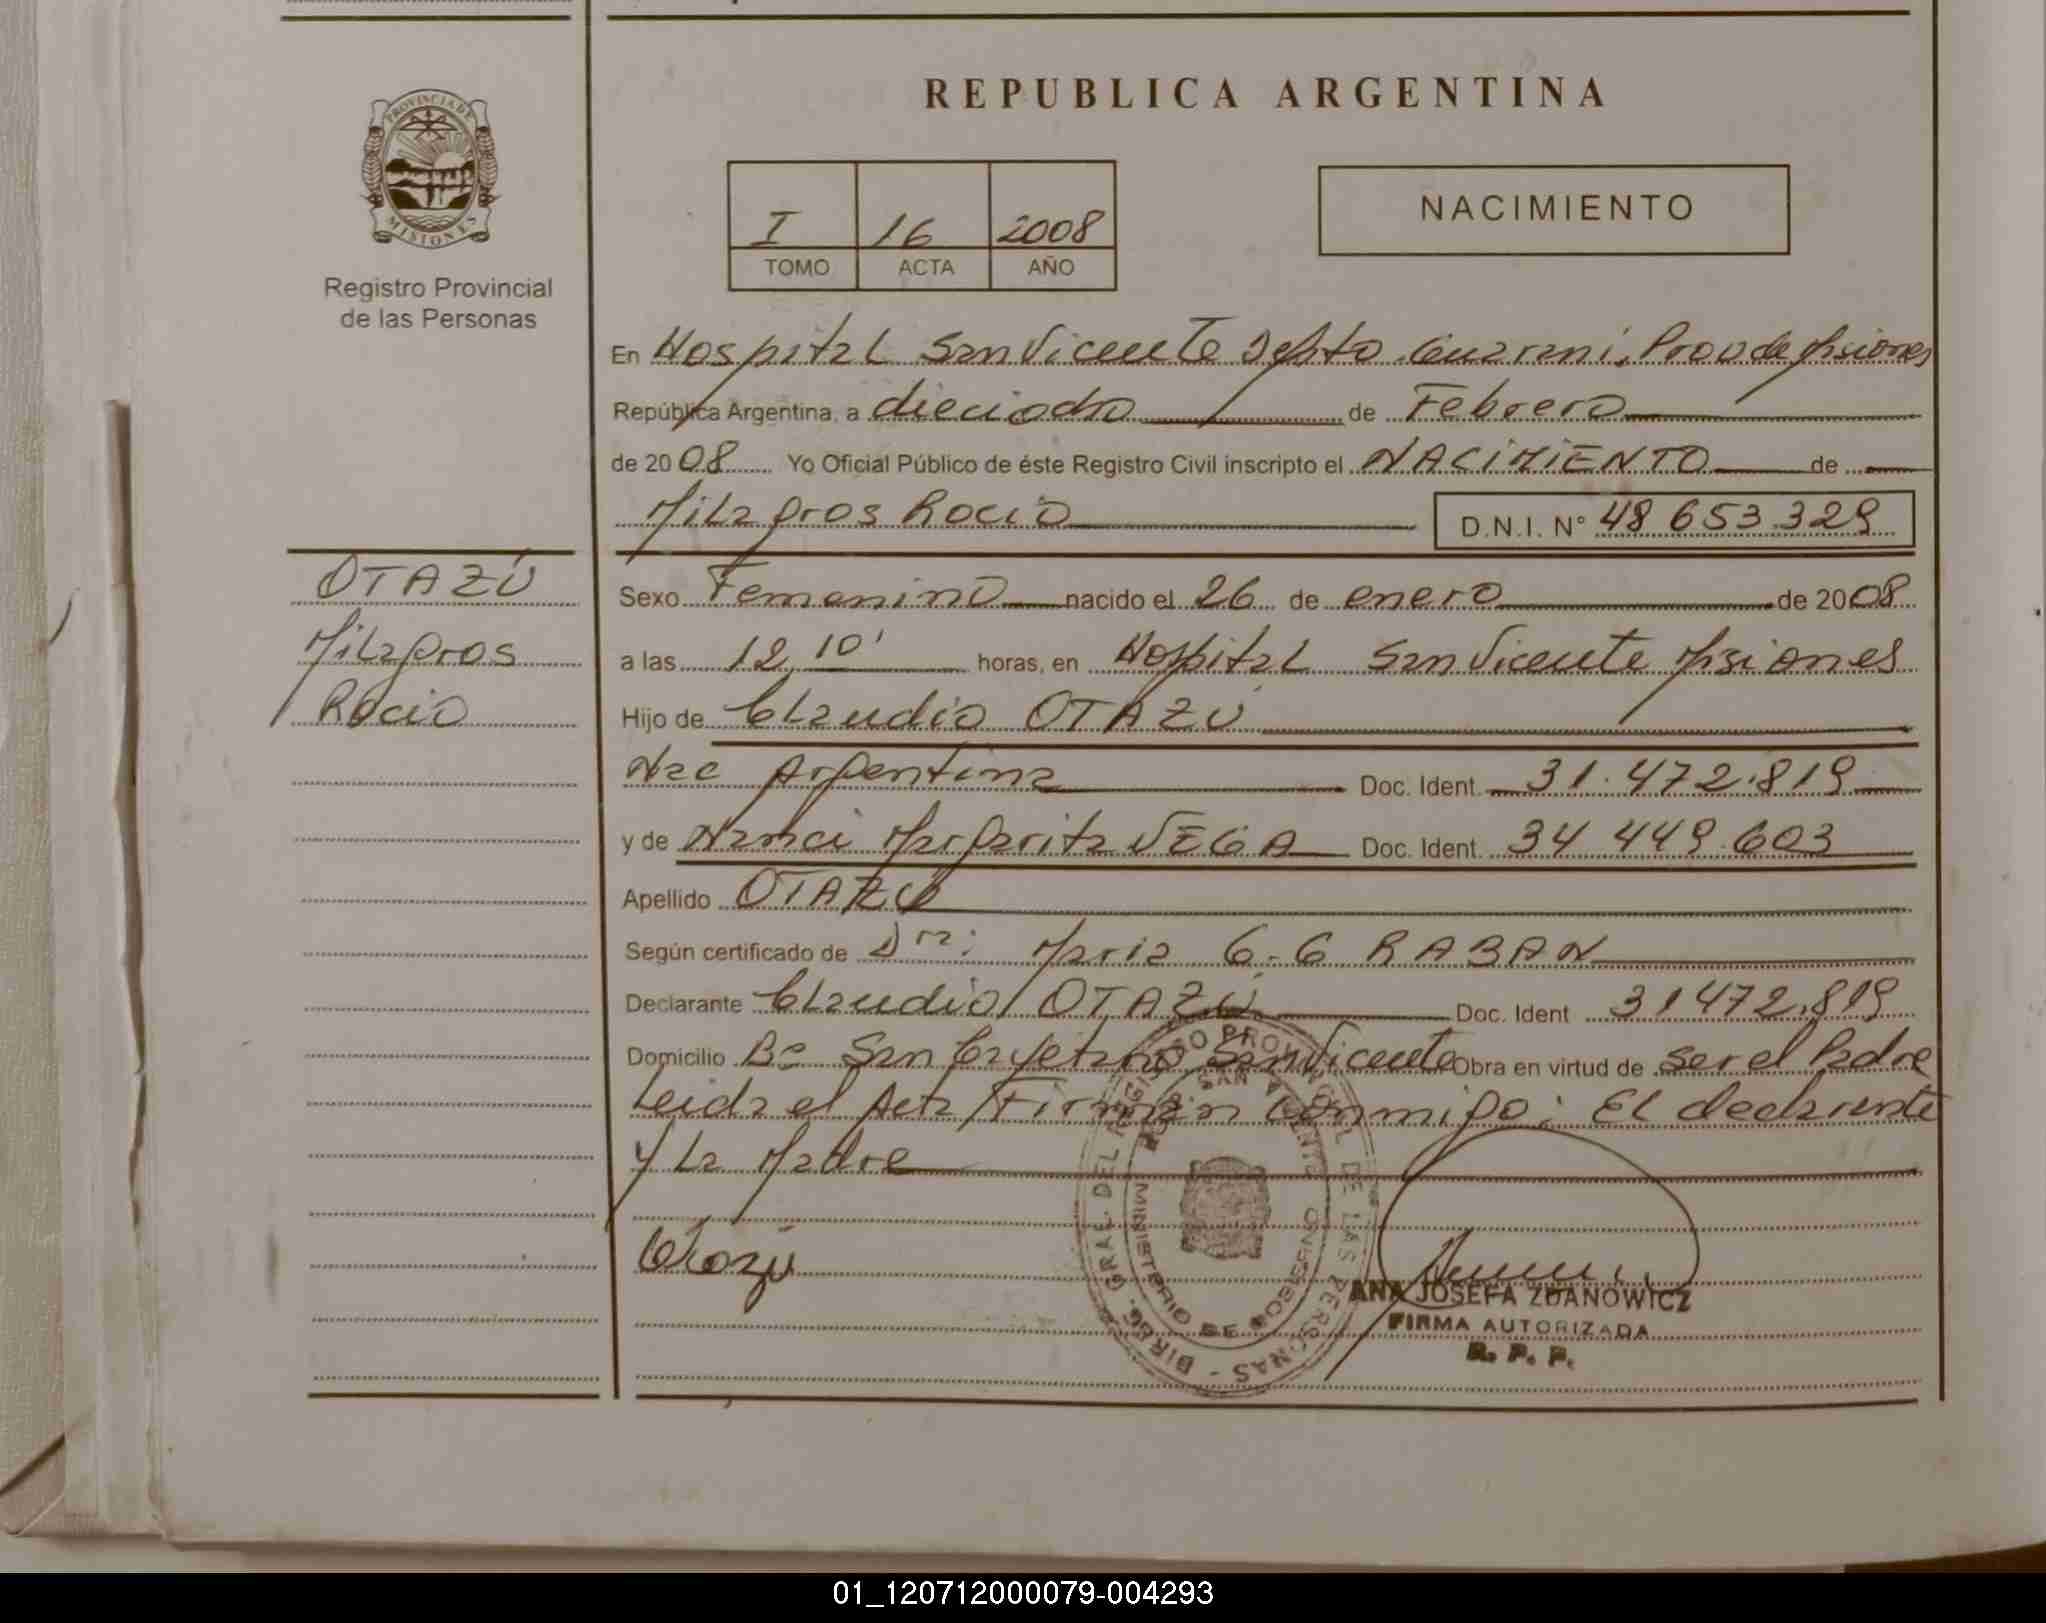 REPUBLICA ARGENTINA
PROVINCIA DE
MISIONES
Registro Provincial
de las Personas
I 16 2008
TOMO ACTA AÑO
NACIMIENTO
En Hospital San Vicente Depto. Guarani, Prov de Misiones
República Argentina, a dieciocho de Febrero
de 2008 Yo Oficial Público de éste Registro Civil inscripto el NACIMIENTO de
Milagros Rocio D.N.I. N° 48 653.329
OTAZÚ
Milagros
Rocio
Sexo Femenino nacido el 26 de enero de 2008
a las 12,10' horas, en Hospital San Vicente Misiones
Hijo de Claudio OTAZÚ
Nac Argentina Doc. Ident. 31.472.819
y de Nanci Margarita VEGA Doc. Ident. 34 449.603
Apellido OTAZÚ
Según certificado de Dra: Maria G. G RABAN
Declarante Claudio OTAZÚ Doc. Ident 31472.819
Domicilio Bº San Cayetano San Vicente Obra en virtud de ser el Padre
Leida el Acta, Firman conmigo: El declarante
y La Madre
DIR. GRAL. DEL REGISTRO PROVINCIAL DE LAS PERSONAS
MINISTERIO DE GOBIERNO
SAN VICENTE
Otazú
ANA JOSEFA ZDANOWICZ
FIRMA AUTORIZADA
R. P. P.
01_120712000079-004293